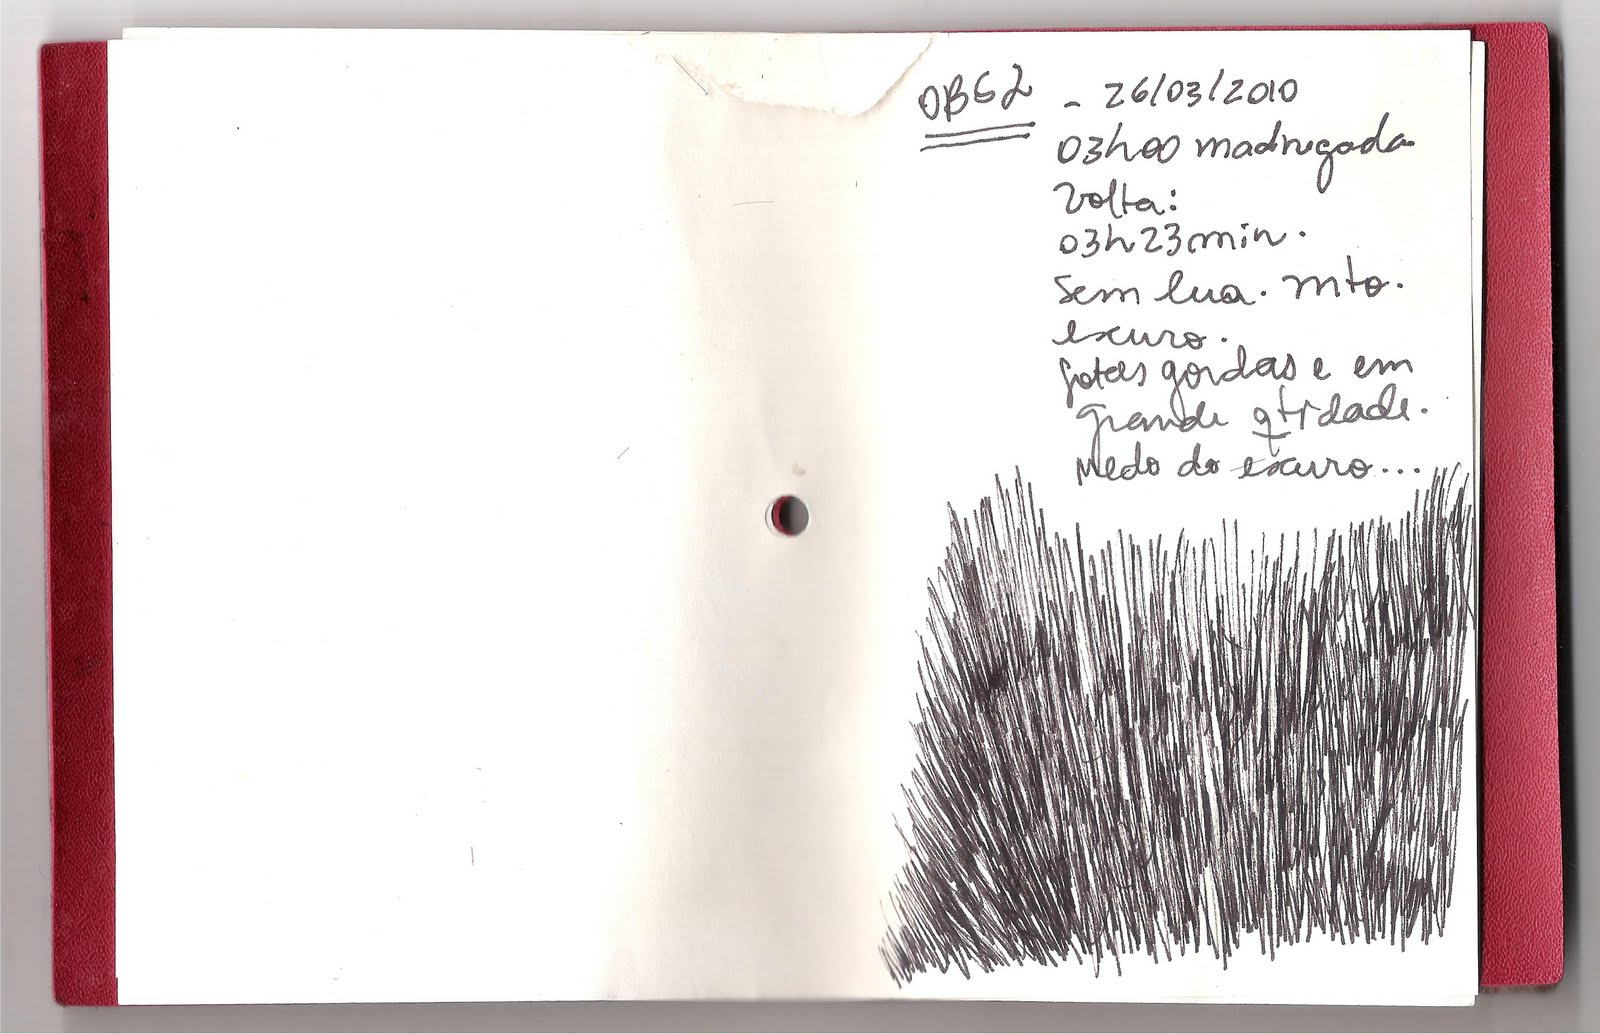 OBS2 - 26/03/2010
03h00 madrugada
Volta:
03h23min.
Sem lua. mto.
escuro.
gotas gordas e em
grande qtidade.
Medo do escuro...